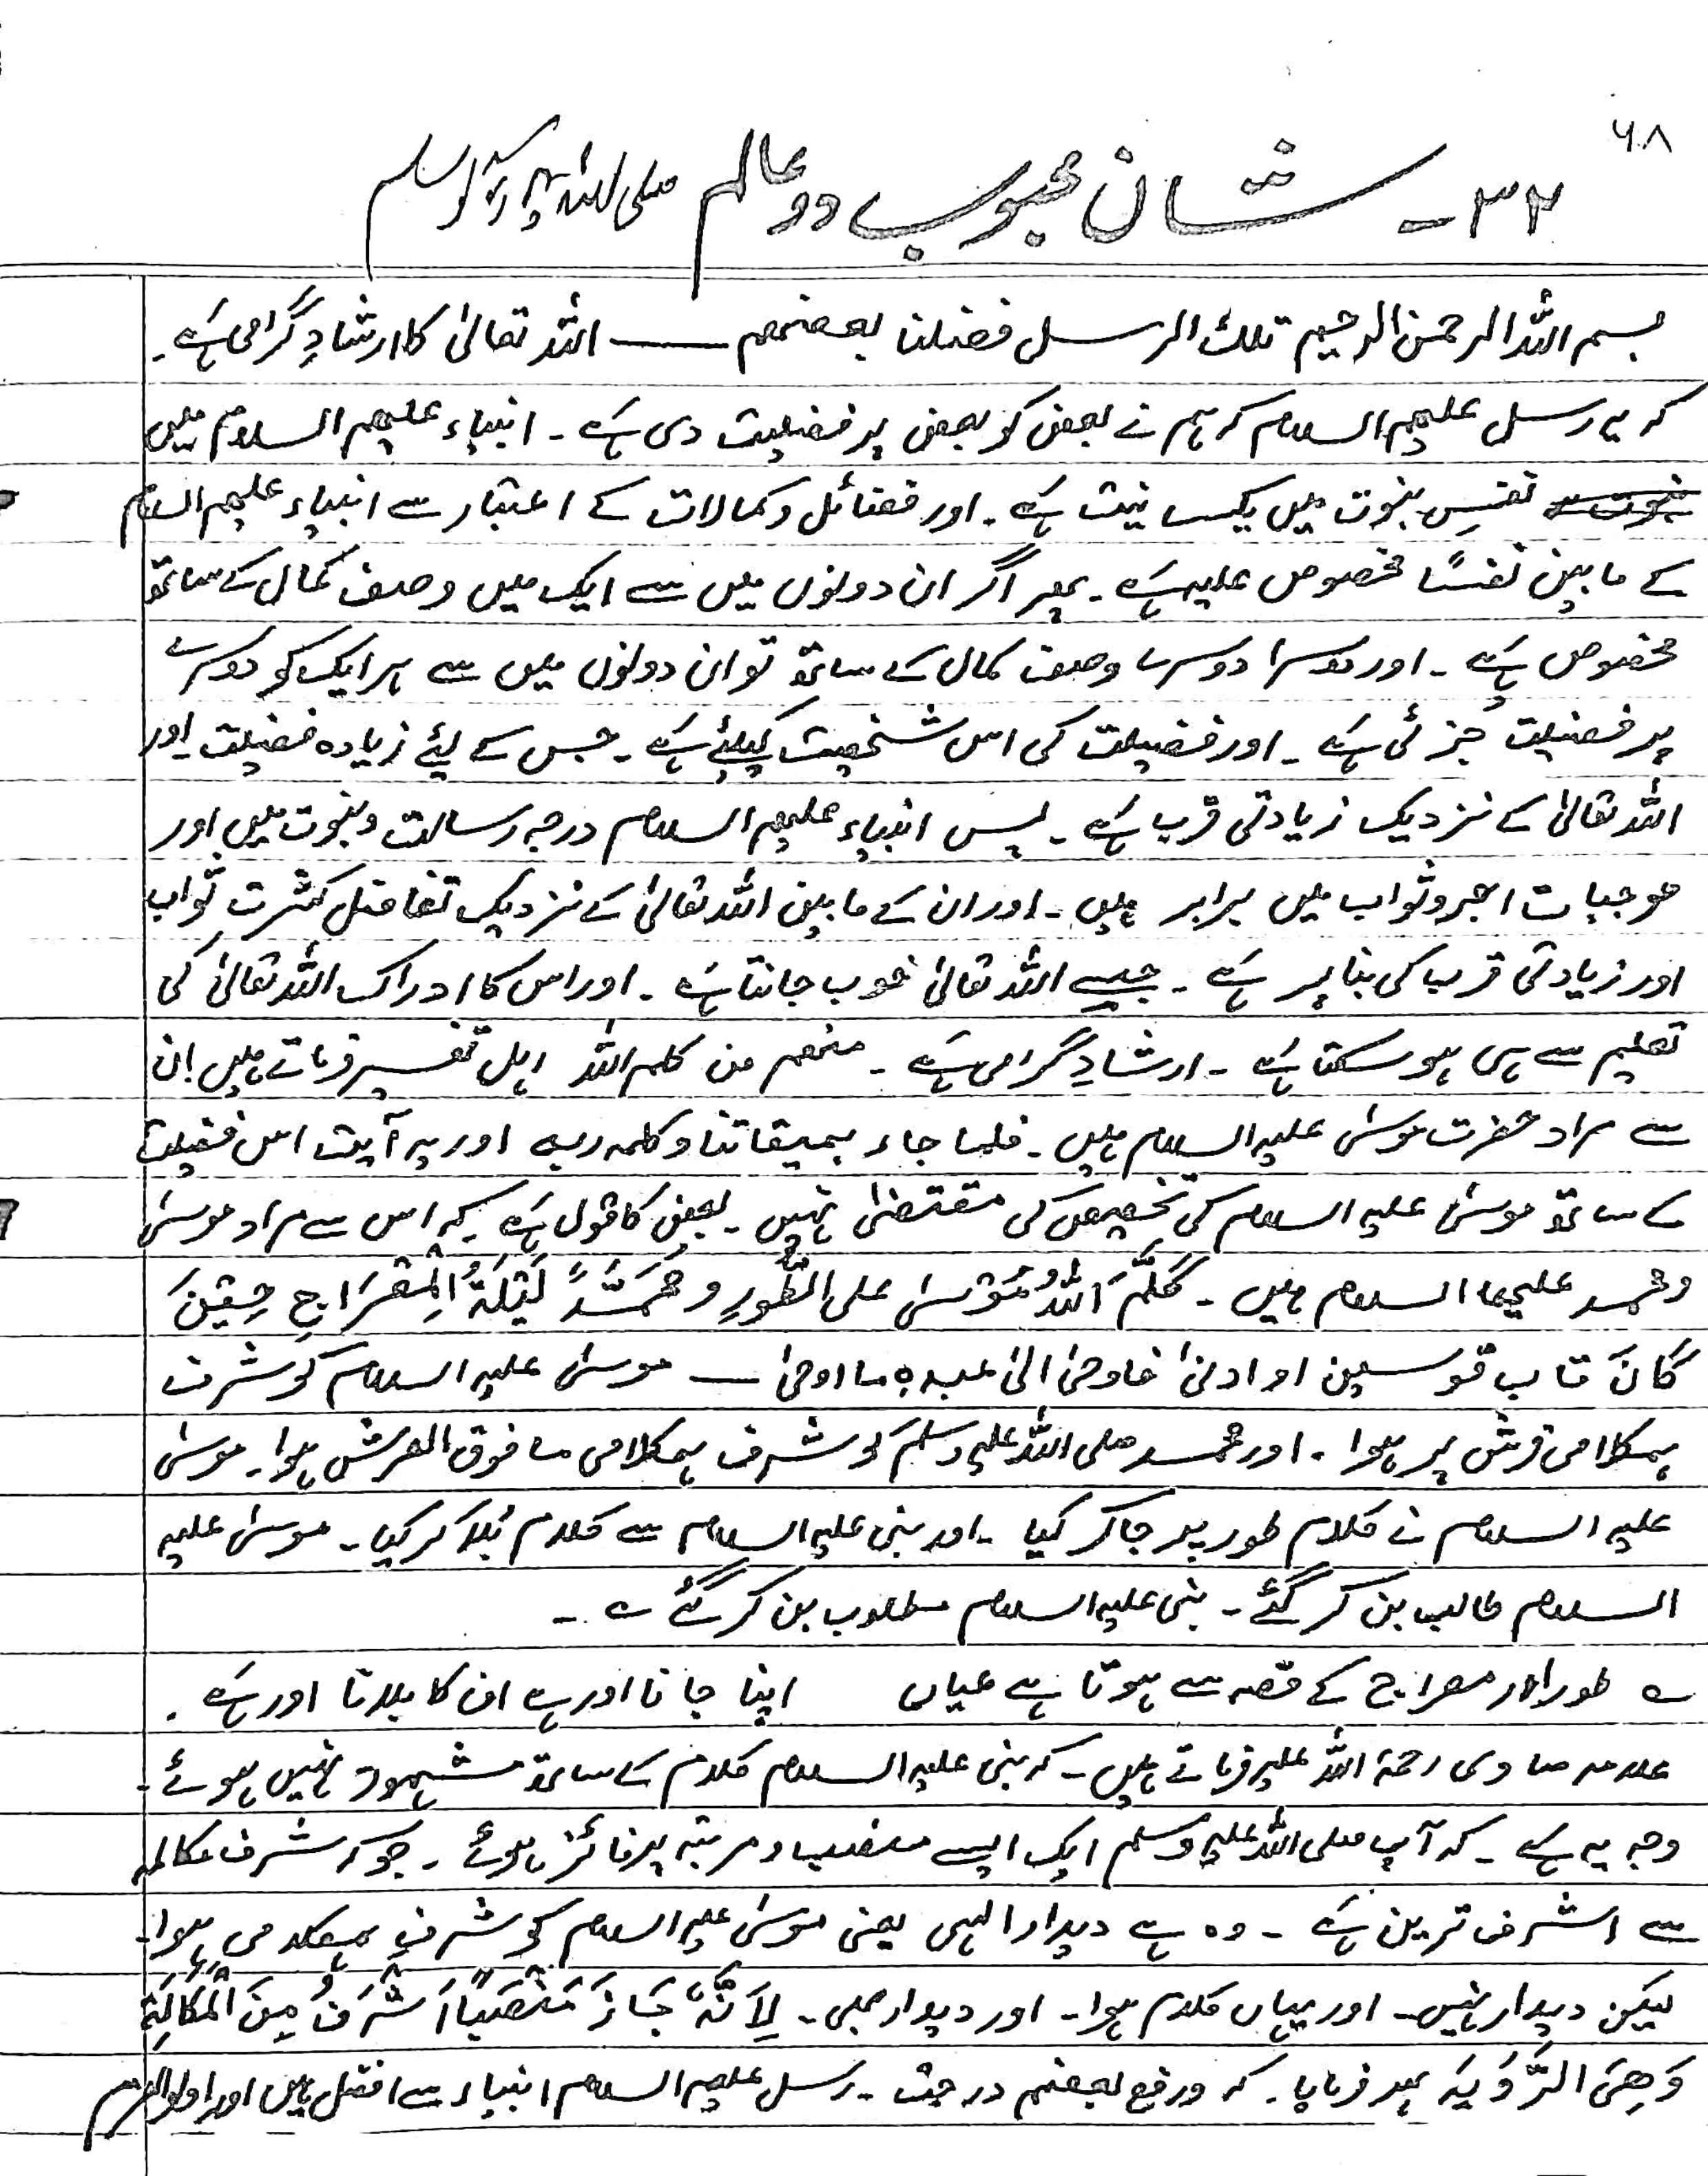 ۶۸
۳۲ - شان محبوب دو عالم صلی اللہ علیہ وآلہ وسلم
بسم اللہ الرحمن الرحیم تلك الرسل فضلنا بعضھم —— اللہ تعالیٰ کا ارشادِ گرامی ہے۔
کہ یہ رسل علیہم السلام کہ ہم نے بعض کو بعض پر فضیلت دی ہے ۔ انبیاء علیہم السلام میں
نفسِ نبوت میں یکسانیت ہے ۔ اور فضائل و کمالات کے اعتبار سے انبیاء علیہم السلام
کے مابین نفسًا مخصوص علیہ ہے ۔ پھر اگر ان دونوں میں سے ایک میں وصف کمال کے ساتھ
مخصوص ہے ۔ اور دوسرا دوسرے وصف کمال کے ساتھ تو ان دونوں میں سے ہر ایک کو دوسرے
پر فضیلت جزئی ہے ۔ اور فضیلت کی اس شخصیت کیلئے ہے ۔ جس کے لئے زیادہ فضیلت اور
اللہ تعالیٰ کے نزدیک زیادتی قرب ہے ۔ پس انبیاء علیہم السلام درجہ رسالت و نبوت میں اور
موجبات اجر و ثواب میں برابر ہیں ۔ اور ان کے مابین اللہ تعالیٰ کے نزدیک تفاضل کثرت ثواب
اور زیادتی قرب کی بنا پر ہے ۔ جسے اللہ تعالیٰ خوب جانتا ہے ۔ اور اس کا ادراک اللہ تعالیٰ کی
تعلیم سے ہی ہو سکتا ہے ۔ ارشادِ گرامی ہے ۔ منھم من کلم اللہ اہل تفسیر فرماتے ہیں ان
سے مراد حضرت موسیٰ علیہ السلام ہیں ۔ فلما جاء بمیقاتنا و کلمہ ربہ اور یہ آیت اس فضیلت
کے ساتھ موسیٰ علیہ السلام کی تخصیص کی مقتضیٰ نہیں ۔ بعض کا قول ہے کہ اس سے مراد موسیٰ
و محمد علیہما السلام ہیں ۔ کَلَّمَ اَللّٰہُ مُوْسیٰ علی الطُّورِ و مُحَمَّدً لَیْلَۃُ الْمِعْرَاجِ حِیْنَ
کَانَ قاب قوسین او ادنیٰ فاوحیٰ الیٰ عبدہ ما اوحیٰ — موسیٰ علیہ السلام کو شرف
ہمکلامی فرش پر ہوا ۔ اور محمد صلی اللہ علیہ وسلم کو شرف ہمکلامی ما فوق العرش ہوا ۔ موسیٰ
علیہ السلام نے کلام طور پر جا کر کیا ۔ اور نبی علیہ السلام سے کلام بُلا کر کیا ۔ موسیٰ علیہ
السلام طالب بن کر گئے ۔ نبی علیہ السلام مطلوب بن کر گئے ۔
؎ طور اور معراج کے قصہ سے ہوتا ہے عیاں اپنا جانا اور ہے ان کا بلانا اور ہے ۔
علامہ صاوی رحمۃ اللہ علیہ فرماتے ہیں ۔ کہ نبی علیہ السلام کلام کے ساتھ مشہور نہیں ہوئے ۔
وجہ یہ ہے ۔ کہ آپ صلی اللہ علیہ وسلم ایک ایسے منصب و مرتبہ پر فائز ہوئے ۔ جو کہ شرف مکالمہ
سے اشرف ترین ہے ۔ وہ ہے دیدار الٰہی یعنی موسیٰ علیہ السلام کو شرفِ ہمکلامی ہوا ۔
لیکن دیدار نہیں ۔ اور یہاں کلام ہوا ۔ اور دیدار بھی ۔ لِاَنَّہٗ حَازَ مَنْصَبًا اَشْرَفُ مِنَ الْمُکَالَمَۃِ
وَھِیَ الرُّؤْیَۃ پھر فرمایا ۔ کہ ورفع بعضھم درجٰت ۔ رسل علیہم السلام انبیاء سے افضل ہیں اور اولو العزم